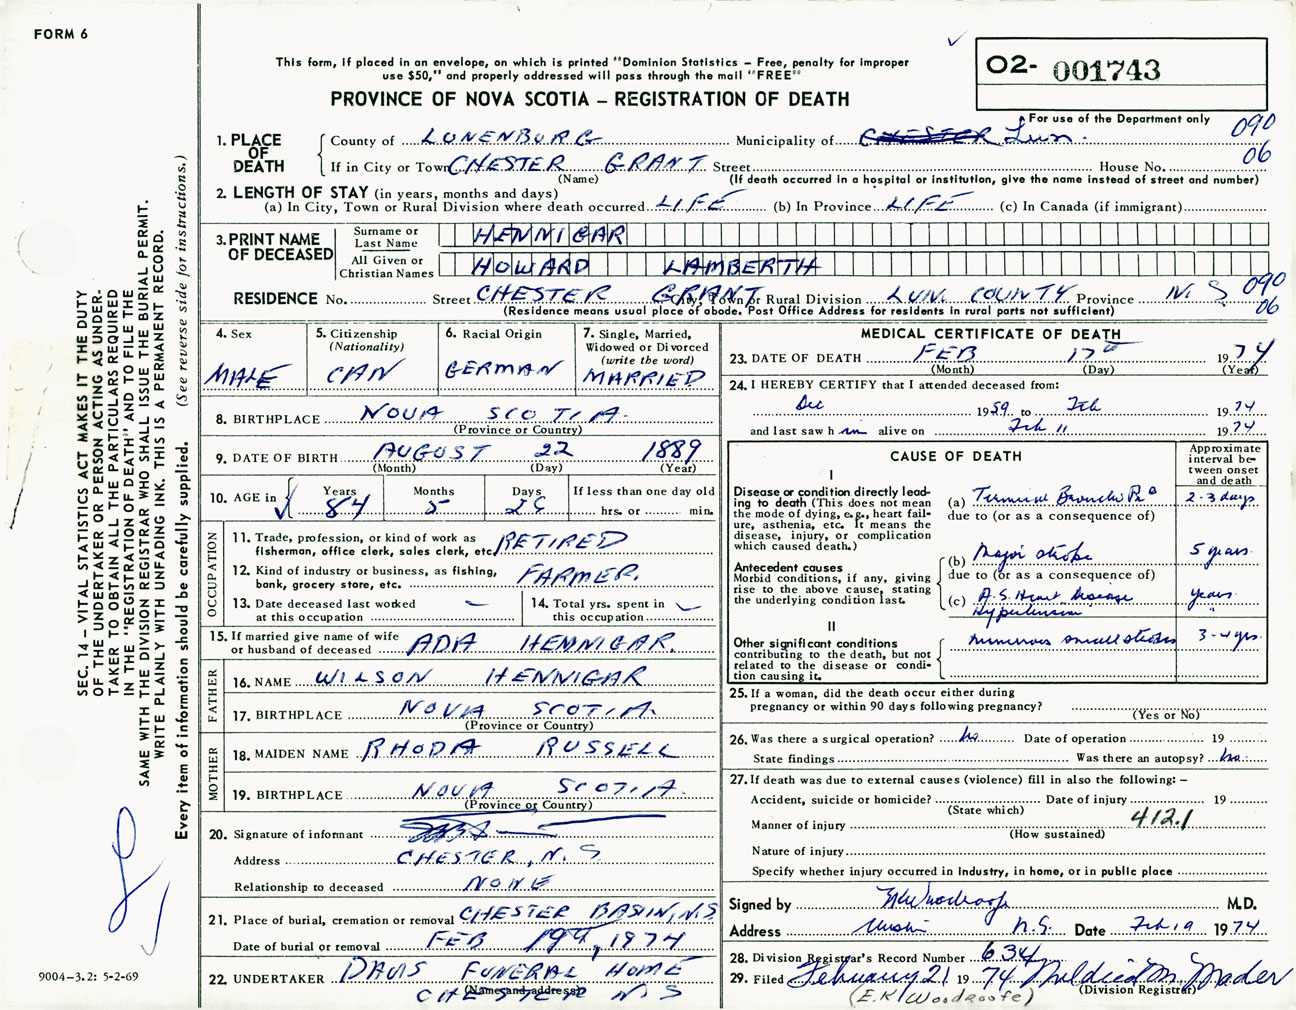 FORM 6
This form, if placed in an envelope, on which is printed "Dominion Statistics – Free, penalty for improper
use $50," and properly addressed will pass through the mail "FREE"
O2- 001743
PROVINCE OF NOVA SCOTIA – REGISTRATION OF DEATH
For use of the Department only
090
06
1. PLACE OF DEATH
County of LUNENBURG Municipality of CHESTER Lun.
If in City or Town CHESTER GRANT Street House No.
(Name) (If death occurred in a hospital or institution, give the name instead of street and number)
2. LENGTH OF STAY (in years, months and days)
(a) In City, Town or Rural Division where death occurred LIFE (b) In Province LIFE (c) In Canada (if immigrant)
3. PRINT NAME OF DECEASED
Surname or Last Name HENNIGAR
All Given or Christian Names HOWARD LAMBERTH
RESIDENCE No. Street CHESTER GRANT City, Town or Rural Division LUN. COUNTY Province N. S 090
06
(Residence means usual place of abode. Post Office Address for residents in rural parts not sufficient)
4. Sex
MALE
5. Citizenship
(Nationality)
CAN
6. Racial Origin
GERMAN
7. Single, Married,
Widowed or Divorced
(write the word)
MARRIED
8. BIRTHPLACE NOVA SCOTIA.
(Province or Country)
9. DATE OF BIRTH AUGUST 22 1889
(Month) (Day) (Year)
10. AGE in Years Months Days If less than one day old
84 5 hrs. or min.
OCCUPATION
11. Trade, profession, or kind of work as
fisherman, office clerk, sales clerk, etc. RETIRED
12. Kind of industry or business, as fishing,
bank, grocery store, etc. FARMER.
13. Date deceased last worked
at this occupation
14. Total yrs. spent in
this occupation
15. If married give name of wife
or husband of deceased ADA HENNIGAR.
FATHER
16. NAME WILSON HENNIGAR
17. BIRTHPLACE NOVA SCOTIA.
(Province or Country)
MOTHER
18. MAIDEN NAME RHODA RUSSELL
19. BIRTHPLACE NOVA SCOTIA.
(Province or Country)
20. Signature of informant
Address CHESTER, N. S
Relationship to deceased NONE
21. Place of burial, cremation or removal CHESTER BASIN, N.S
Date of burial or removal FEB 19th, 1974
22. UNDERTAKER DAVIS FUNERAL HOME
(Name and address)
CHESTER N S
MEDICAL CERTIFICATE OF DEATH
23. DATE OF DEATH FEB 17th 1974
(Month) (Day) (Year)
24. I HEREBY CERTIFY that I attended deceased from:
Dec 1959 to Feb 1974
and last saw h im alive on Feb 11 1974
CAUSE OF DEATH
Approximate
interval be-
tween onset
and death
I
Disease or condition directly lead-
ing to death (This does not mean
the mode of dying, e.g., heart fail-
ure, asthenia, etc. It means the
disease, injury, or complication
which caused death.)
(a) Terminal Broncho Pn 2-3 days
due to (or as a consequence of)
Antecedent causes
Morbid conditions, if any, giving
rise to the above cause, stating
the underlying condition last.
(b) Major stroke 5 years
due to (or as a consequence of)
(c) A.S. Heart Disease years
Hypertension "
II
Other significant conditions
contributing to the death, but not
related to the disease or condi-
tion causing it.
Numerous small strokes 3-4 yrs.
25. If a woman, did the death occur either during
pregnancy or within 90 days following pregnancy?
(Yes or No)
26. Was there a surgical operation? no Date of operation 19
State findings Was there an autopsy? no.
27. If death was due to external causes (violence) fill in also the following: –
Accident, suicide or homicide? Date of injury 19
(State which)
Manner of injury 412.1
(How sustained)
Nature of injury
Specify whether injury occurred in industry, in home, or in public place
Signed by EK Woodroofe M.D.
Address N.S. Date Feb 19 1974
28. Division Registrar's Record Number 634
29. Filed February 21 1974 Mildred M. Nader
(Division Registrar)
(E.K Woodroofe)
SEC. 14 – VITAL STATISTICS ACT MAKES IT THE DUTY
OF THE UNDERTAKER OR PERSON ACTING AS UNDER-
TAKER TO OBTAIN ALL THE PARTICULARS REQUIRED
IN THE "REGISTRATION OF DEATH" AND TO FILE THE
SAME WITH THE DIVISION REGISTRAR WHO SHALL ISSUE THE BURIAL PERMIT.
WRITE PLAINLY WITH UNFADING INK. THIS IS A PERMANENT RECORD.
Every item of information should be carefully supplied. (See reverse side for instructions.)
9004–3.2: 5-2-69